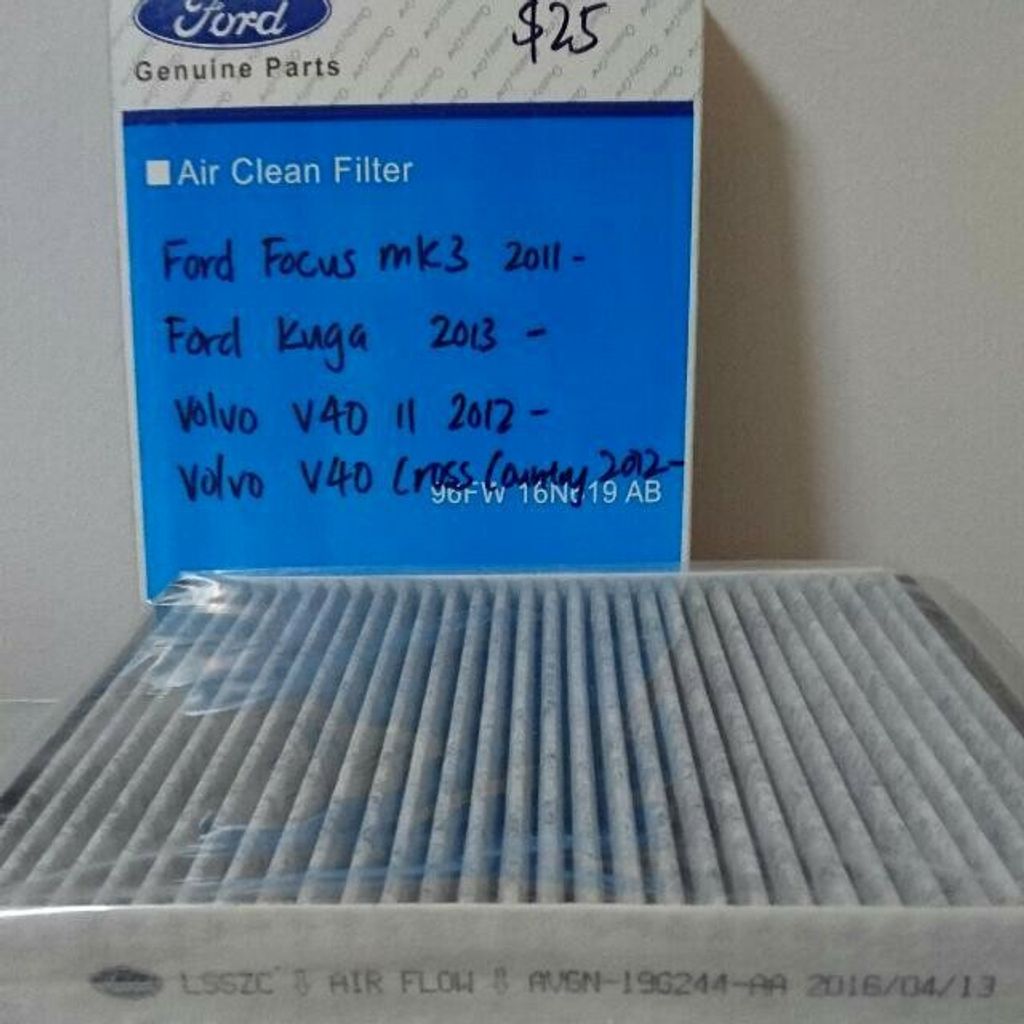 Ford
$25
Genuine Parts
Air Clean Filter
Ford Focus mk3 2011-
Ford Kuga 2013 -
Volvo V40 II 2012-
Volvo V40 Cross Country 2012-
96FW 16N619 AB
AIR FLOW AV6N-19G244-AA 2016/04/13